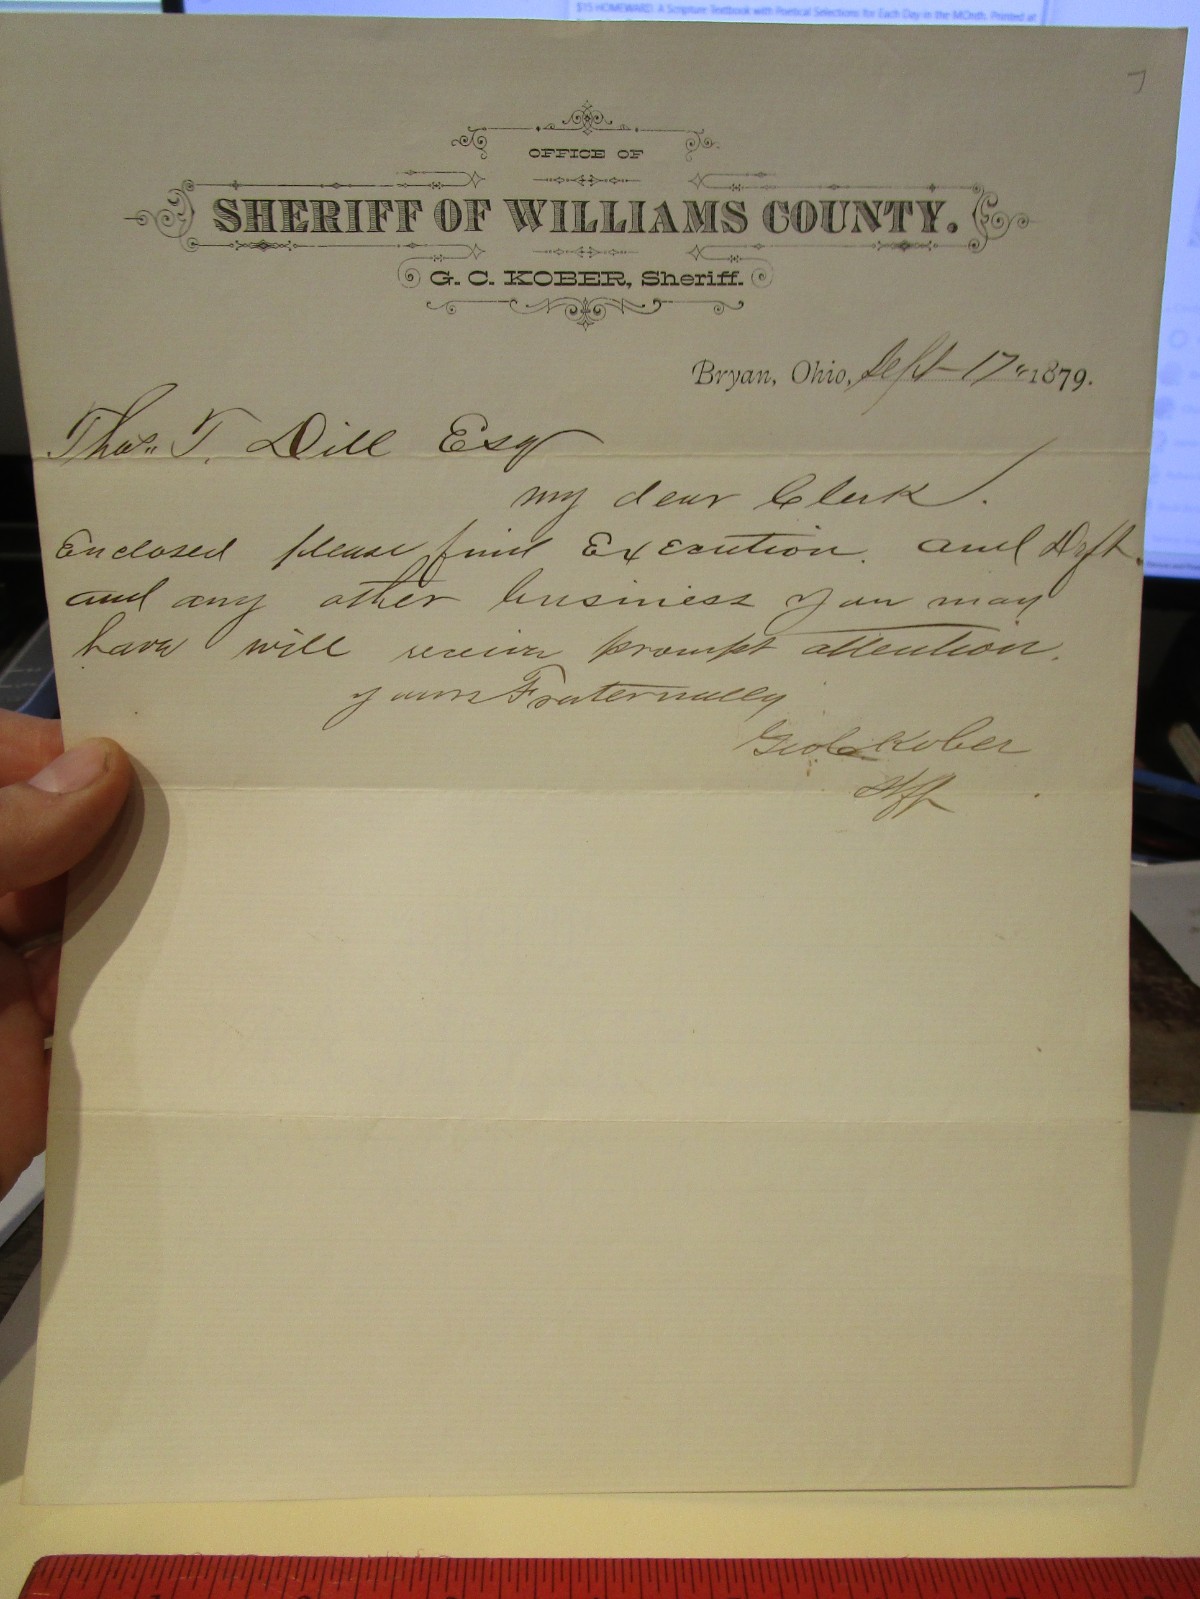 $15 HOMEWARD: A Scripture Textbook with Poetical Selections for Each Day in the MOnth, Printed at
OFFICE OF
SHERIFF OF WILLIAMS COUNTY.
G. C. KOBER, Sheriff.
Bryan, Ohio, Sept 17" 1879.
Thos. T. Dill Esq
my dear Clerk.
Enclosed please find Execution. and Dft.
and any other business you may
have will receive prompt attention.
yours Fraternally
Geo C Kober
Shff
1
2
3
4
5
6
7